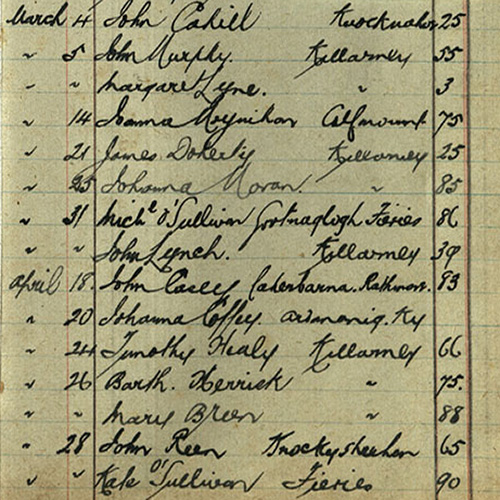 March 4 John Cahill Knocknahoe 25
" 5 John Murphy. Killarney 55
" " Margaret Lyne. " 3
" 14 Joanna Moynihan 75
" 21 James Doherty Killarney 25
" 25 Johanna Moran. " 85
" 31 Michl O'Sullivan Gortnaglogh Fieries 86
" " John Lynch. Killarney 39
April 18. John Casey Caherbarna. Rathmore. 83
" 20 Johanna Coffey. Ky
" 24 Timothy Healy Killarney 66
" 26 Barth. Herrick " 75.
" " Mary Breen " 88
" 28 John Reen Knockysheehan 65
" " Kate O'Sullivan Fieries 90